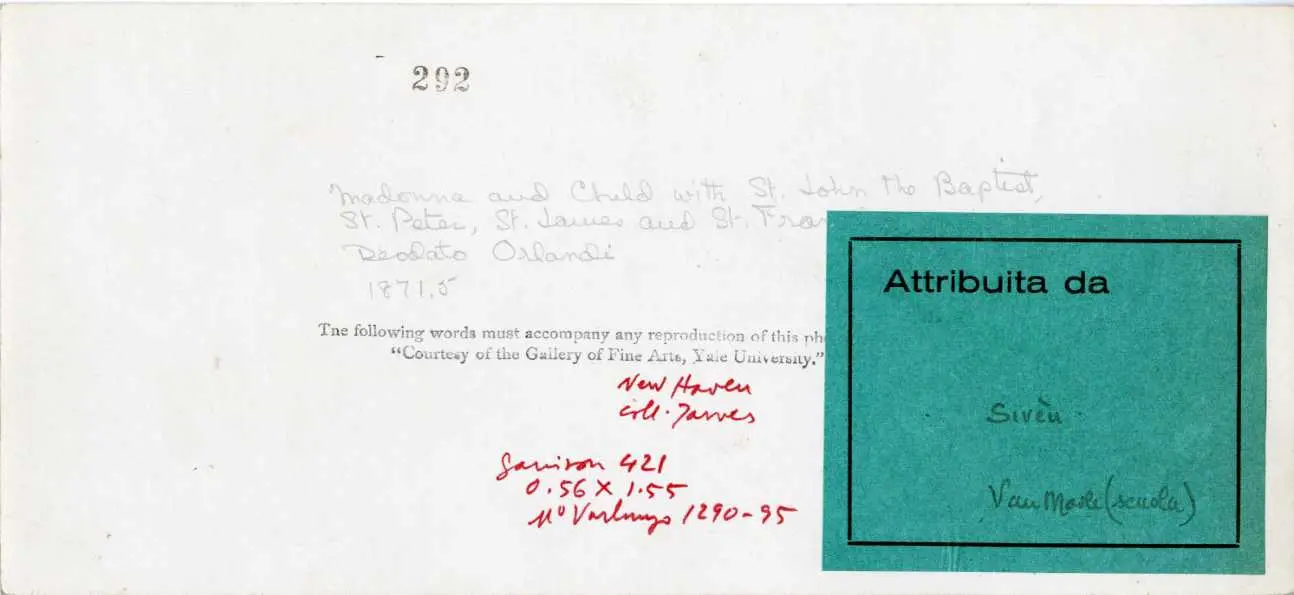 292
Madonna and Child with St. John the Baptist,
St. Peter, St. James and St. Fran
Deodato Orlandi
1871.5
Tne following words must accompany any reproduction of this pho
"Courtesy of the Gallery of Fine Arts, Yale University."
New Haven
coll. Jarves
Garrison 421
0.56 X 1.55
Mo Varlungo 1290-95
Attribuita da
Sirèn
Van Marle (scuola)